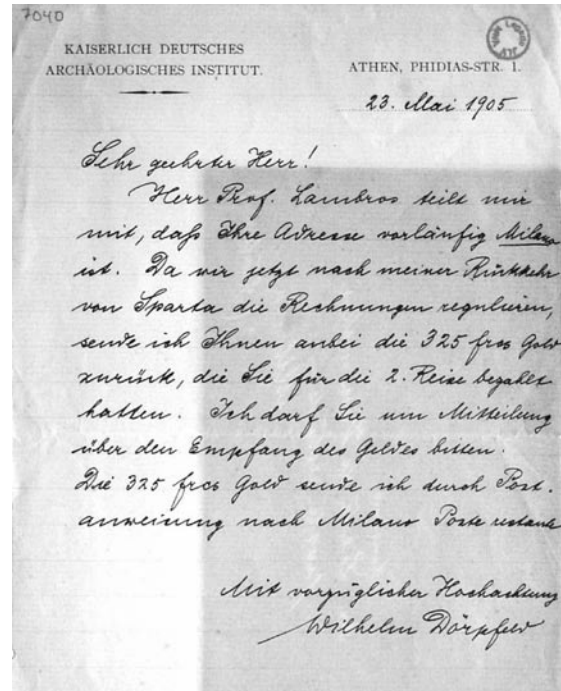 7040
KAISERLICH DEUTSCHES
ARCHÄOLOGISCHES INSTITUT.
ATHEN, PHIDIAS-STR. 1.
23. Mai 1905
Sehr geehrter Herr!
Herr Prof. Lambros teilt mir
mit, daſs Ihre Adresse vorläufig Milano
ist. Da wir jetzt nach meiner Rückkehr
von Sparta die Rechnungen regulieren,
sende ich Ihnen anbei die 325 frcs Gold
zurück, die Sie für die 2. Reise bezahlt
hatten. Ich darf Sie um Mitteilung
über den Empfang des Geldes bitten.
Die 325 frcs Gold sende ich durch Post-
anweisung nach Milano Poste restante
Mit vorzüglicher Hochachtung
Wilhelm Dörpfeld